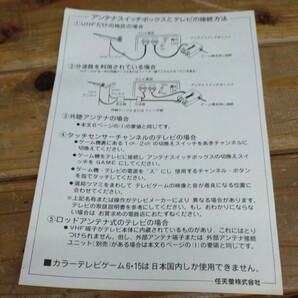 アンテナスイッチボックスとテレビの接続方法
①VHFだけの地区の場合
②分波器を利用されている場合
③共聴アンテナの場合
●本文6ページの(I)の要領と同じです。
④タッチセンサーチャンネルのテレビの場合
●ゲーム機裏にある1ch・2chの切換えスイッチをあきチャンネルに
切換えてください。
●ゲーム機をテレビに接続し アンテナスイッチボックスの切換えスイッ
チを GAME にしてください。
●ゲーム機・テレビの電源を"入"にし 使用するチャンネル・ボタン
を指で押してください。
●選局ツマミをまわして テレビゲームの映像と音が最良になる位置に
合わせてください。
※上記名称または操作がテレビメーカーにより異なる場合もあります。テ
レビの取扱説明書を参考にして、もし おわかりにならない場合
はお買求めの電気店にたずねてください。
⑤ロッドアンテナ式のテレビの場合
●VHF端子がテレビ本体に内蔵されているものがあり、これにはとり
つけられません。但し、外部アンテナ端子または 外部アンテナ接続
ユニット(別売)がある場合は本文6ページの(I)の要領と同じです。
■カラーテレビゲーム6・15は日本国内しか使用できません。
任天堂株式会社